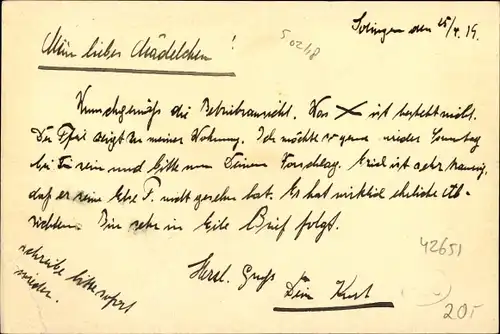 Solingen den 25/4. 19.
Mein liebes Mädelchen!
50248
Wunschgemäß die Betriebsansicht. Das X ist besteht nicht.
Der Pfeil zeigt zu meiner Wohnung. Ich möchte so gerne wieder Sonntag
bei Dir sein und bitte um Deinen Vorschlag. Erich ist sehr traurig,
daß er seine Else P. nicht gesehen hat. Er hat wirklich ehrliche Ab-
sichten. Bin sehr in Eile Brief folgt.
schreibe bitte sofort
wieder.
Herzl. Gruß
Dein Kurt
42651
20,-